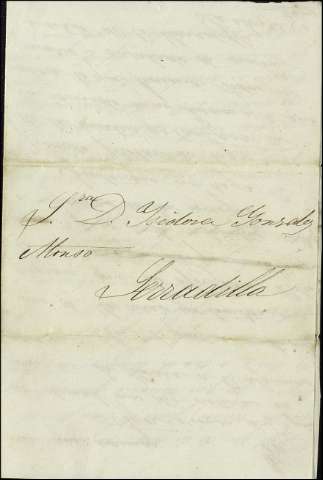 Sra D. Isidora Gonzalez
Alonso
Serradilla